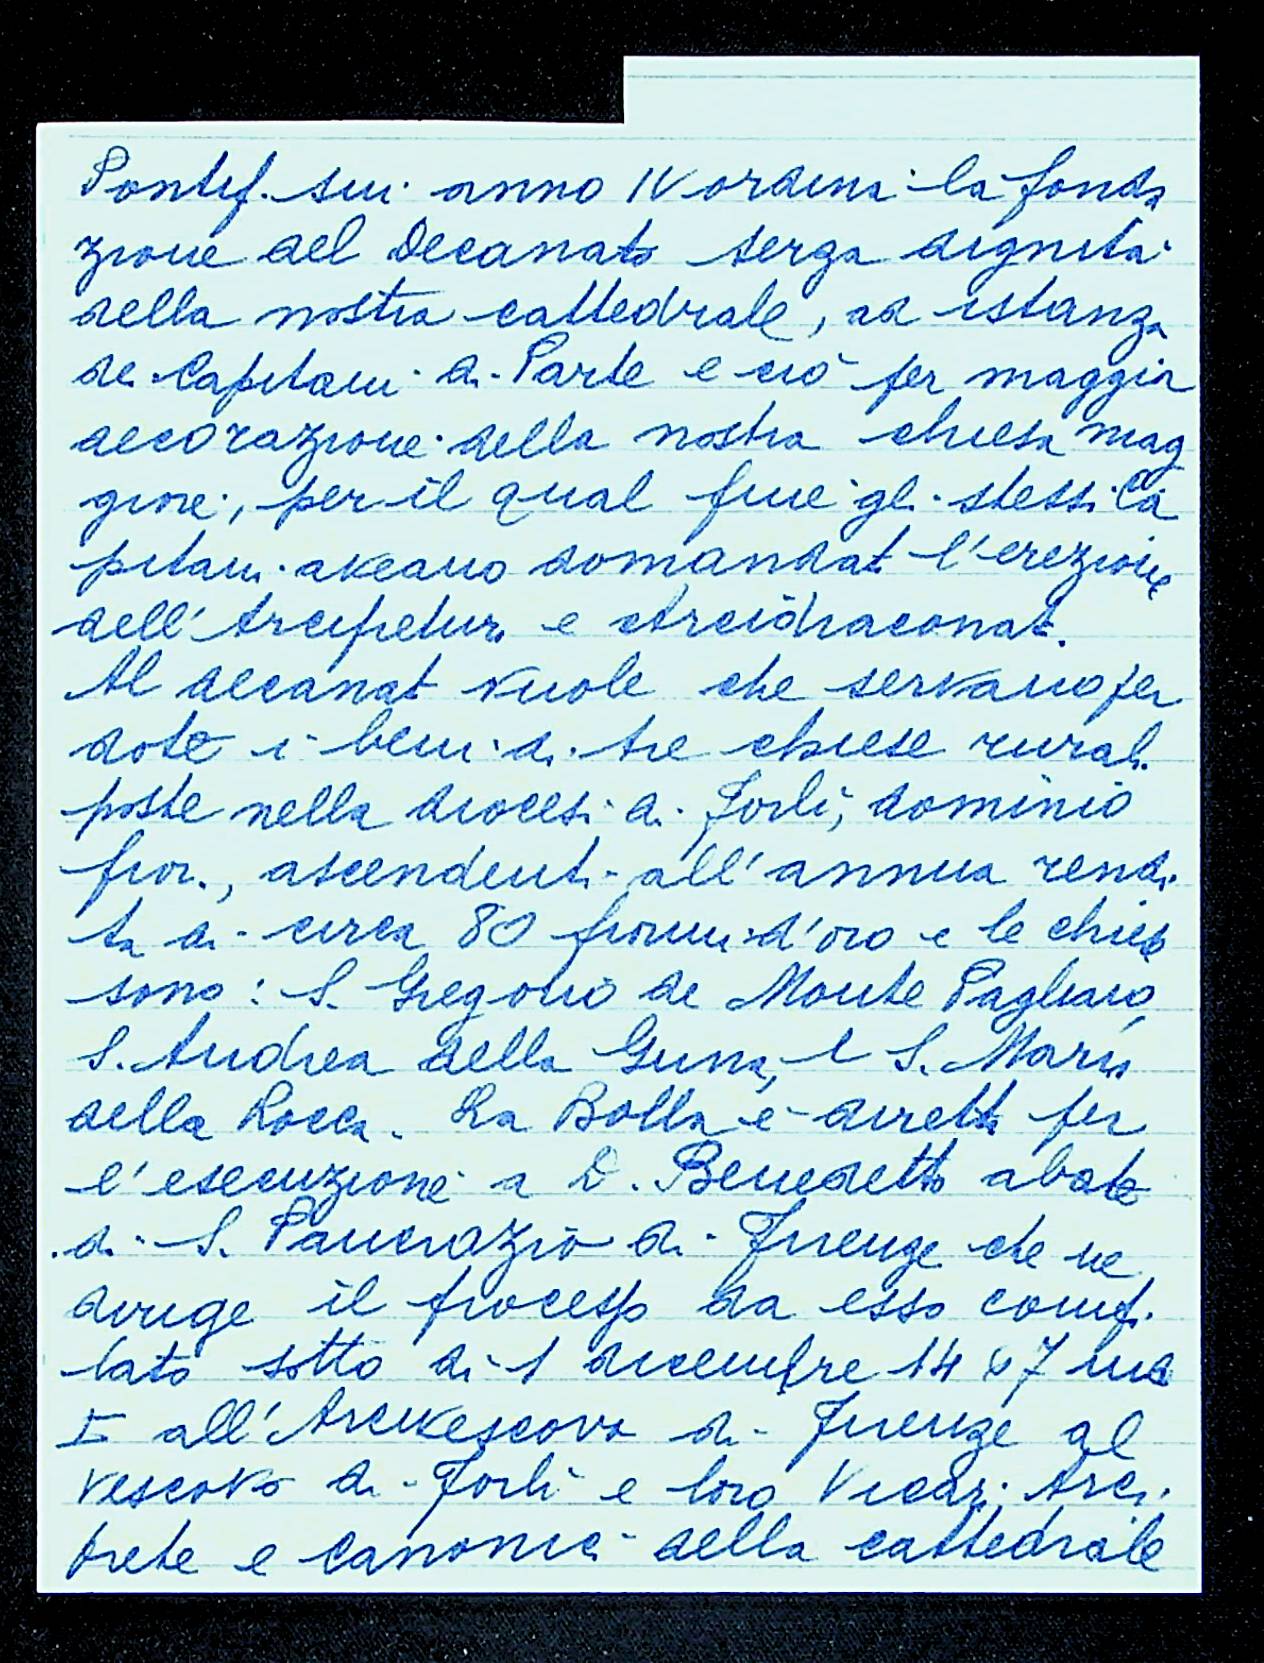 Pontif. sui anno IV ordina la fonda
zione del Decanato terza dignità
della nostra cattedrale, ad istanza
dei Capitani di Parte e ciò per maggior
decorazione della nostra chiesa mag
giore, per il qual fine gli stessi Ca
pitani aveano domandat l'erezione
dell'Arcipretura e Arcidiaconat.
Al decanat vuole che servano per
dote i beni di tre chiese rurali
poste nella diocesi di Forlì, dominio
fior., ascendenti all'annua rendi
ta di circa 80 fiorini d'oro e le chiese
sono: S. Gregorio de Monte Pagliaio,
S. Andrea della e S. Maria
della Rocca. La Bolla è diretta per
l'esecuzione a D. Benedetto abate
di S. Pancrazio di Firenze che ne
dirige il processo da esso compi
lato sotto di 1 dicembre 14 7 ind
I all'Arcivescovo di Firenze al
vescovo di Forlì e loro Vicari, Arci
prete e canonici della cattedrale